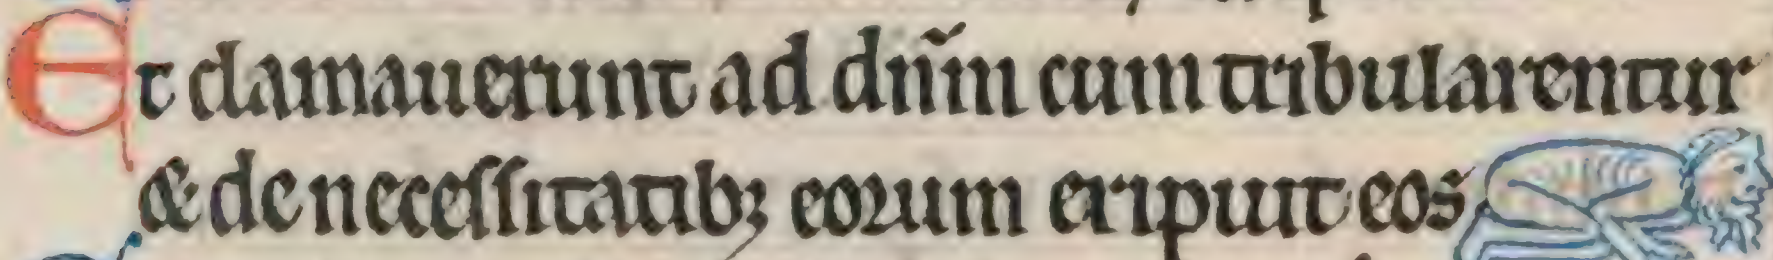 Et clamauerunt ad dn̄m cum tribularentur
& de neceſſitatibꝫ eoꝝum eripuit eos